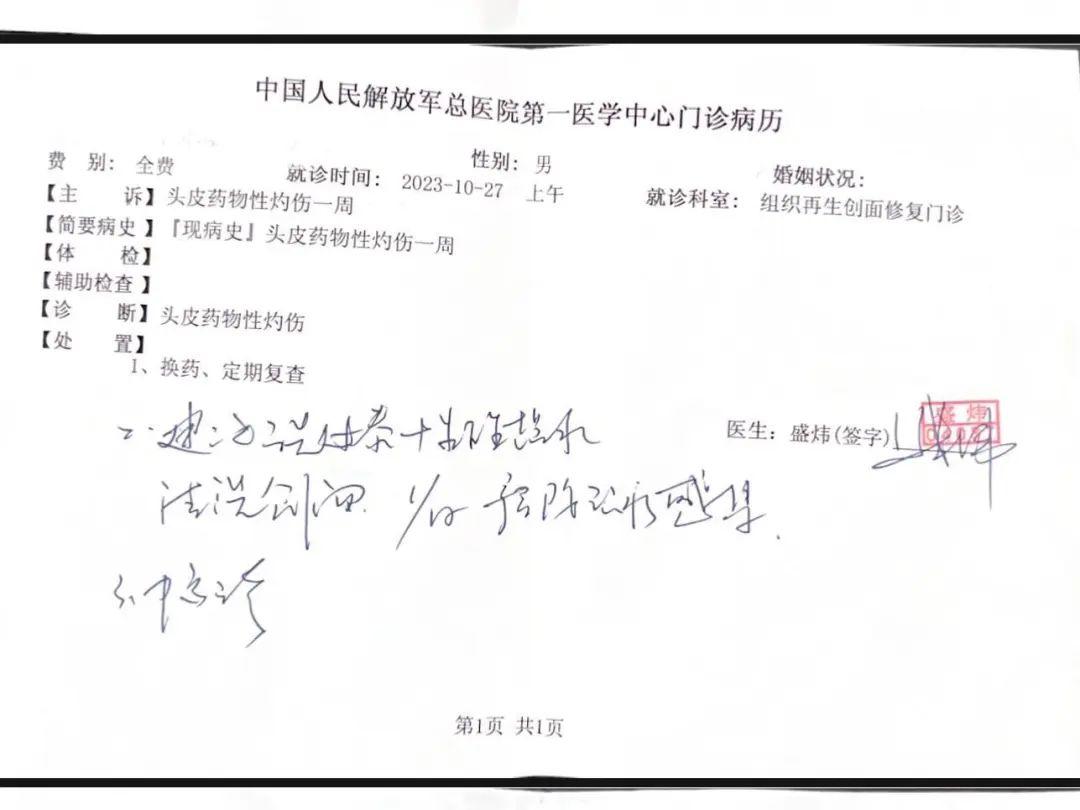 中国人民解放军总医院第一医学中心门诊病历
费 别: 全费 就诊时间: 2023-10-27 上午 性别: 男 就诊科室: 组织再生创面修复门诊 婚姻状况:
【主 诉】头皮药物性灼伤一周
【简要病史】『现病史』头皮药物性灼伤一周
【体 检】
【辅助检查】
【诊 断】头皮药物性灼伤
【处 置】
1、换药、定期复查
二、建议
医生: 盛炜(签字)
盛炜
清洗创面 1/日 预防
第1页 共1页